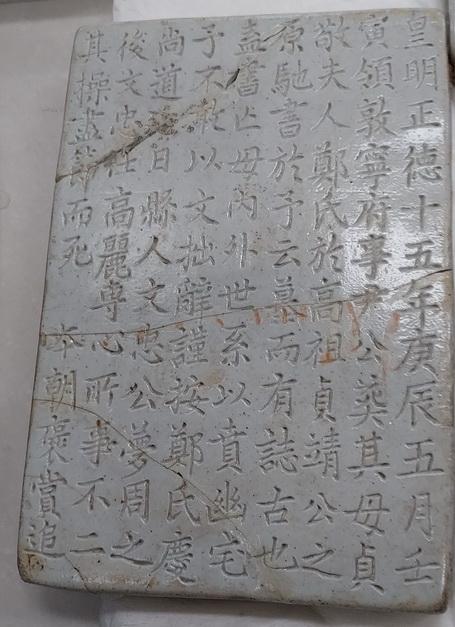 皇明正德十五年庚辰五月壬
寅領敦寧府事尹公葬其母貞
敬夫人鄭氏於高祖貞靖公之
原馳書於予云墓而有誌古也
盍書亡母內外世系以賁幽宅
予不敢以文拙辭謹按鄭氏慶
尚道日縣人文忠公夢周之
後文忠在高麗專心所事不二
其操盡節而死 本朝褒賞追